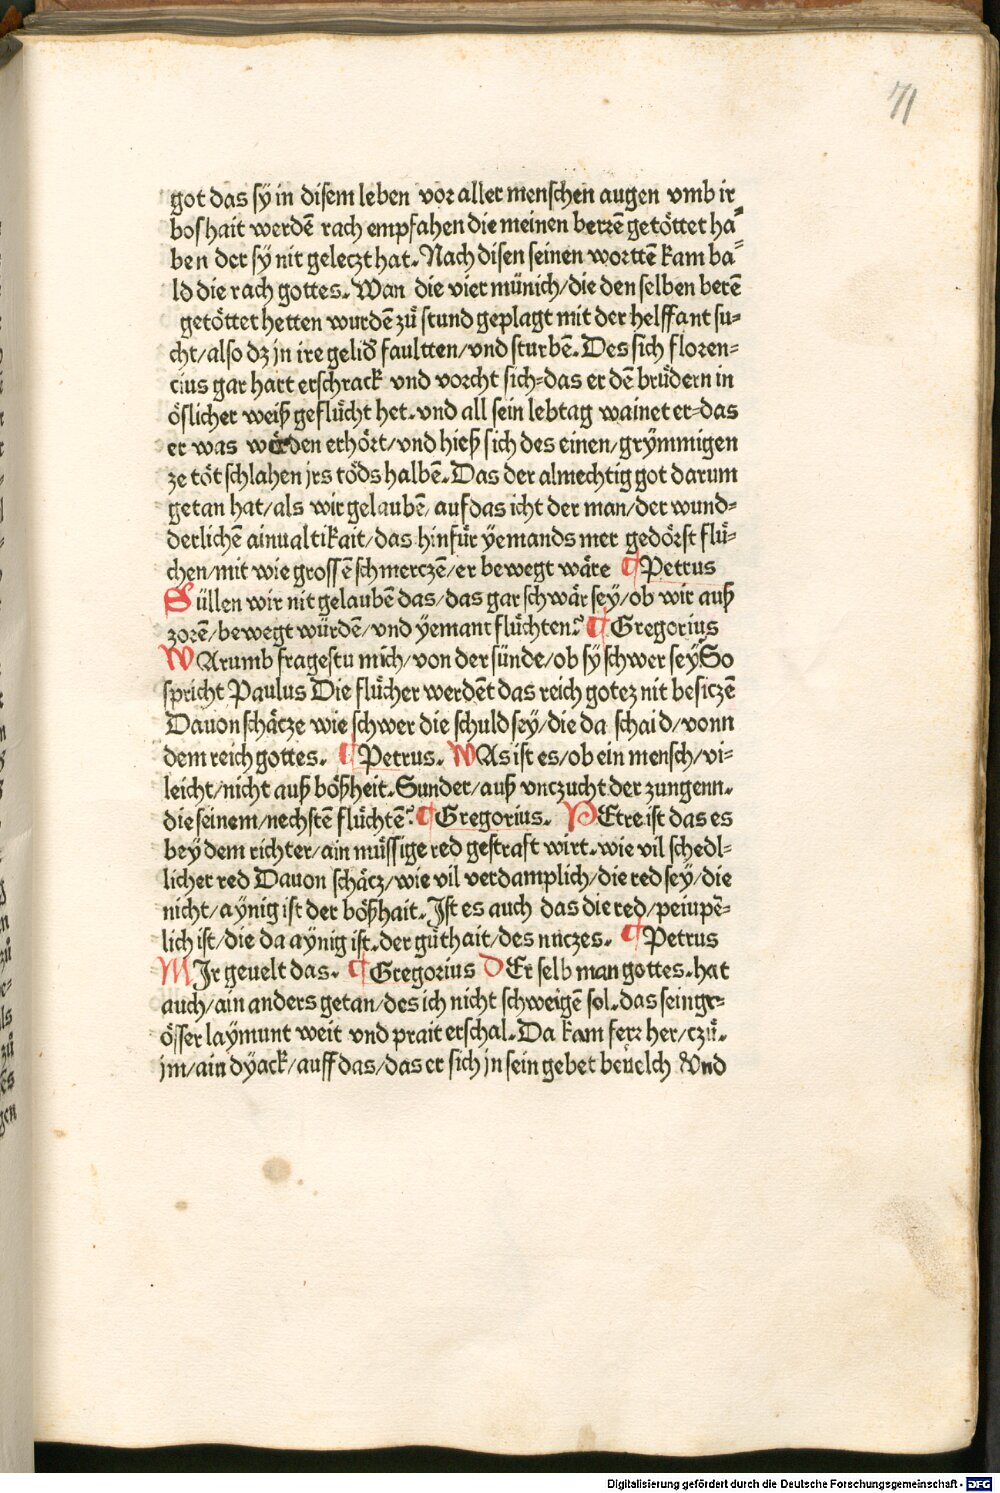 71
got das sÿ in disem leben vor aller menschen augen vmb ir
boshait werdē rach empfahen die meinen berrē getöttet ha⸗
ben der sÿ nit geleczt hat. Nach disen seinen wortē kam ba⸗
ld die rach gottes. Wan die vier münich/die den selben berē
getöttet hetten wurdē zů stund geplagt mit der helffant su⸗
cht/also dz jn ire gelid faultten/vnd sturbē. Des sich floren⸗
cius gar hart erschrack vnd vorcht sich⸗das er dē brüdern in
öslicher weiß geflücht het. vnd all sein lebtag wainet er⸗das
er was worden erhört/vnd hieß sich des einen/grÿmmigen
ze töt schlahen jrs töds halbē. Das der almechtig got darum
getan hat/als wir gelaubē/auf das icht der man/der wund⸗
derlichē ainualtikait/das hinfür ÿemands mer gedörst flü⸗
chen/mit wie grossē schmerczē/er bewegt wäre ¶ Petrus
Süllen wir nit gelaubē das/das gar schwär seÿ/ob wir auß
zorē/bewegt würdē/vnd ÿemant flüchten? ¶ Gregorius
WArumb fragestu mich/von der sünde/ob sÿ schwer seÿ So
spricht Paulus Die flücher werdēt das reich gotez nit besiczē
Dauon schäcze wie schwer die schuld seÿ/die da schaid/vonn
dem reich gottes. ¶ Petrus. WAs ist es/ob ein mensch/vi⸗
leicht/nicht auß bößheit. Sunder/auß vnczucht der zungenn.
die seinem/nechstē flüchtē? ¶ Gregorius. PEtre ist das es
beÿ dem richter/ain müssige red gestraft wirt. wie vil schedl⸗
licher red Dauon schäcz/wie vil verdamplich/die red seÿ/die
nicht/aÿnig ist der bößhait. Ist es auch das die red/peiupē⸗
lich ist/die da aÿnig ist. der gůthait/des nuczes. ¶ Petrus
MIr geuelt das. ¶ Gregorius DEr selb man gottes. hat
auch/ain anders getan/des ich nicht schweigē sol. das sein gr⸗
össer laÿmunt weit vnd prait erschal. Da kam ferr her/czů.
jm/ain dÿack/auff das/das er sich jn sein gebet beuelch Vnd
Digitalisierung gefördert durch die Deutsche Forschungsgemeinschaft - DFG